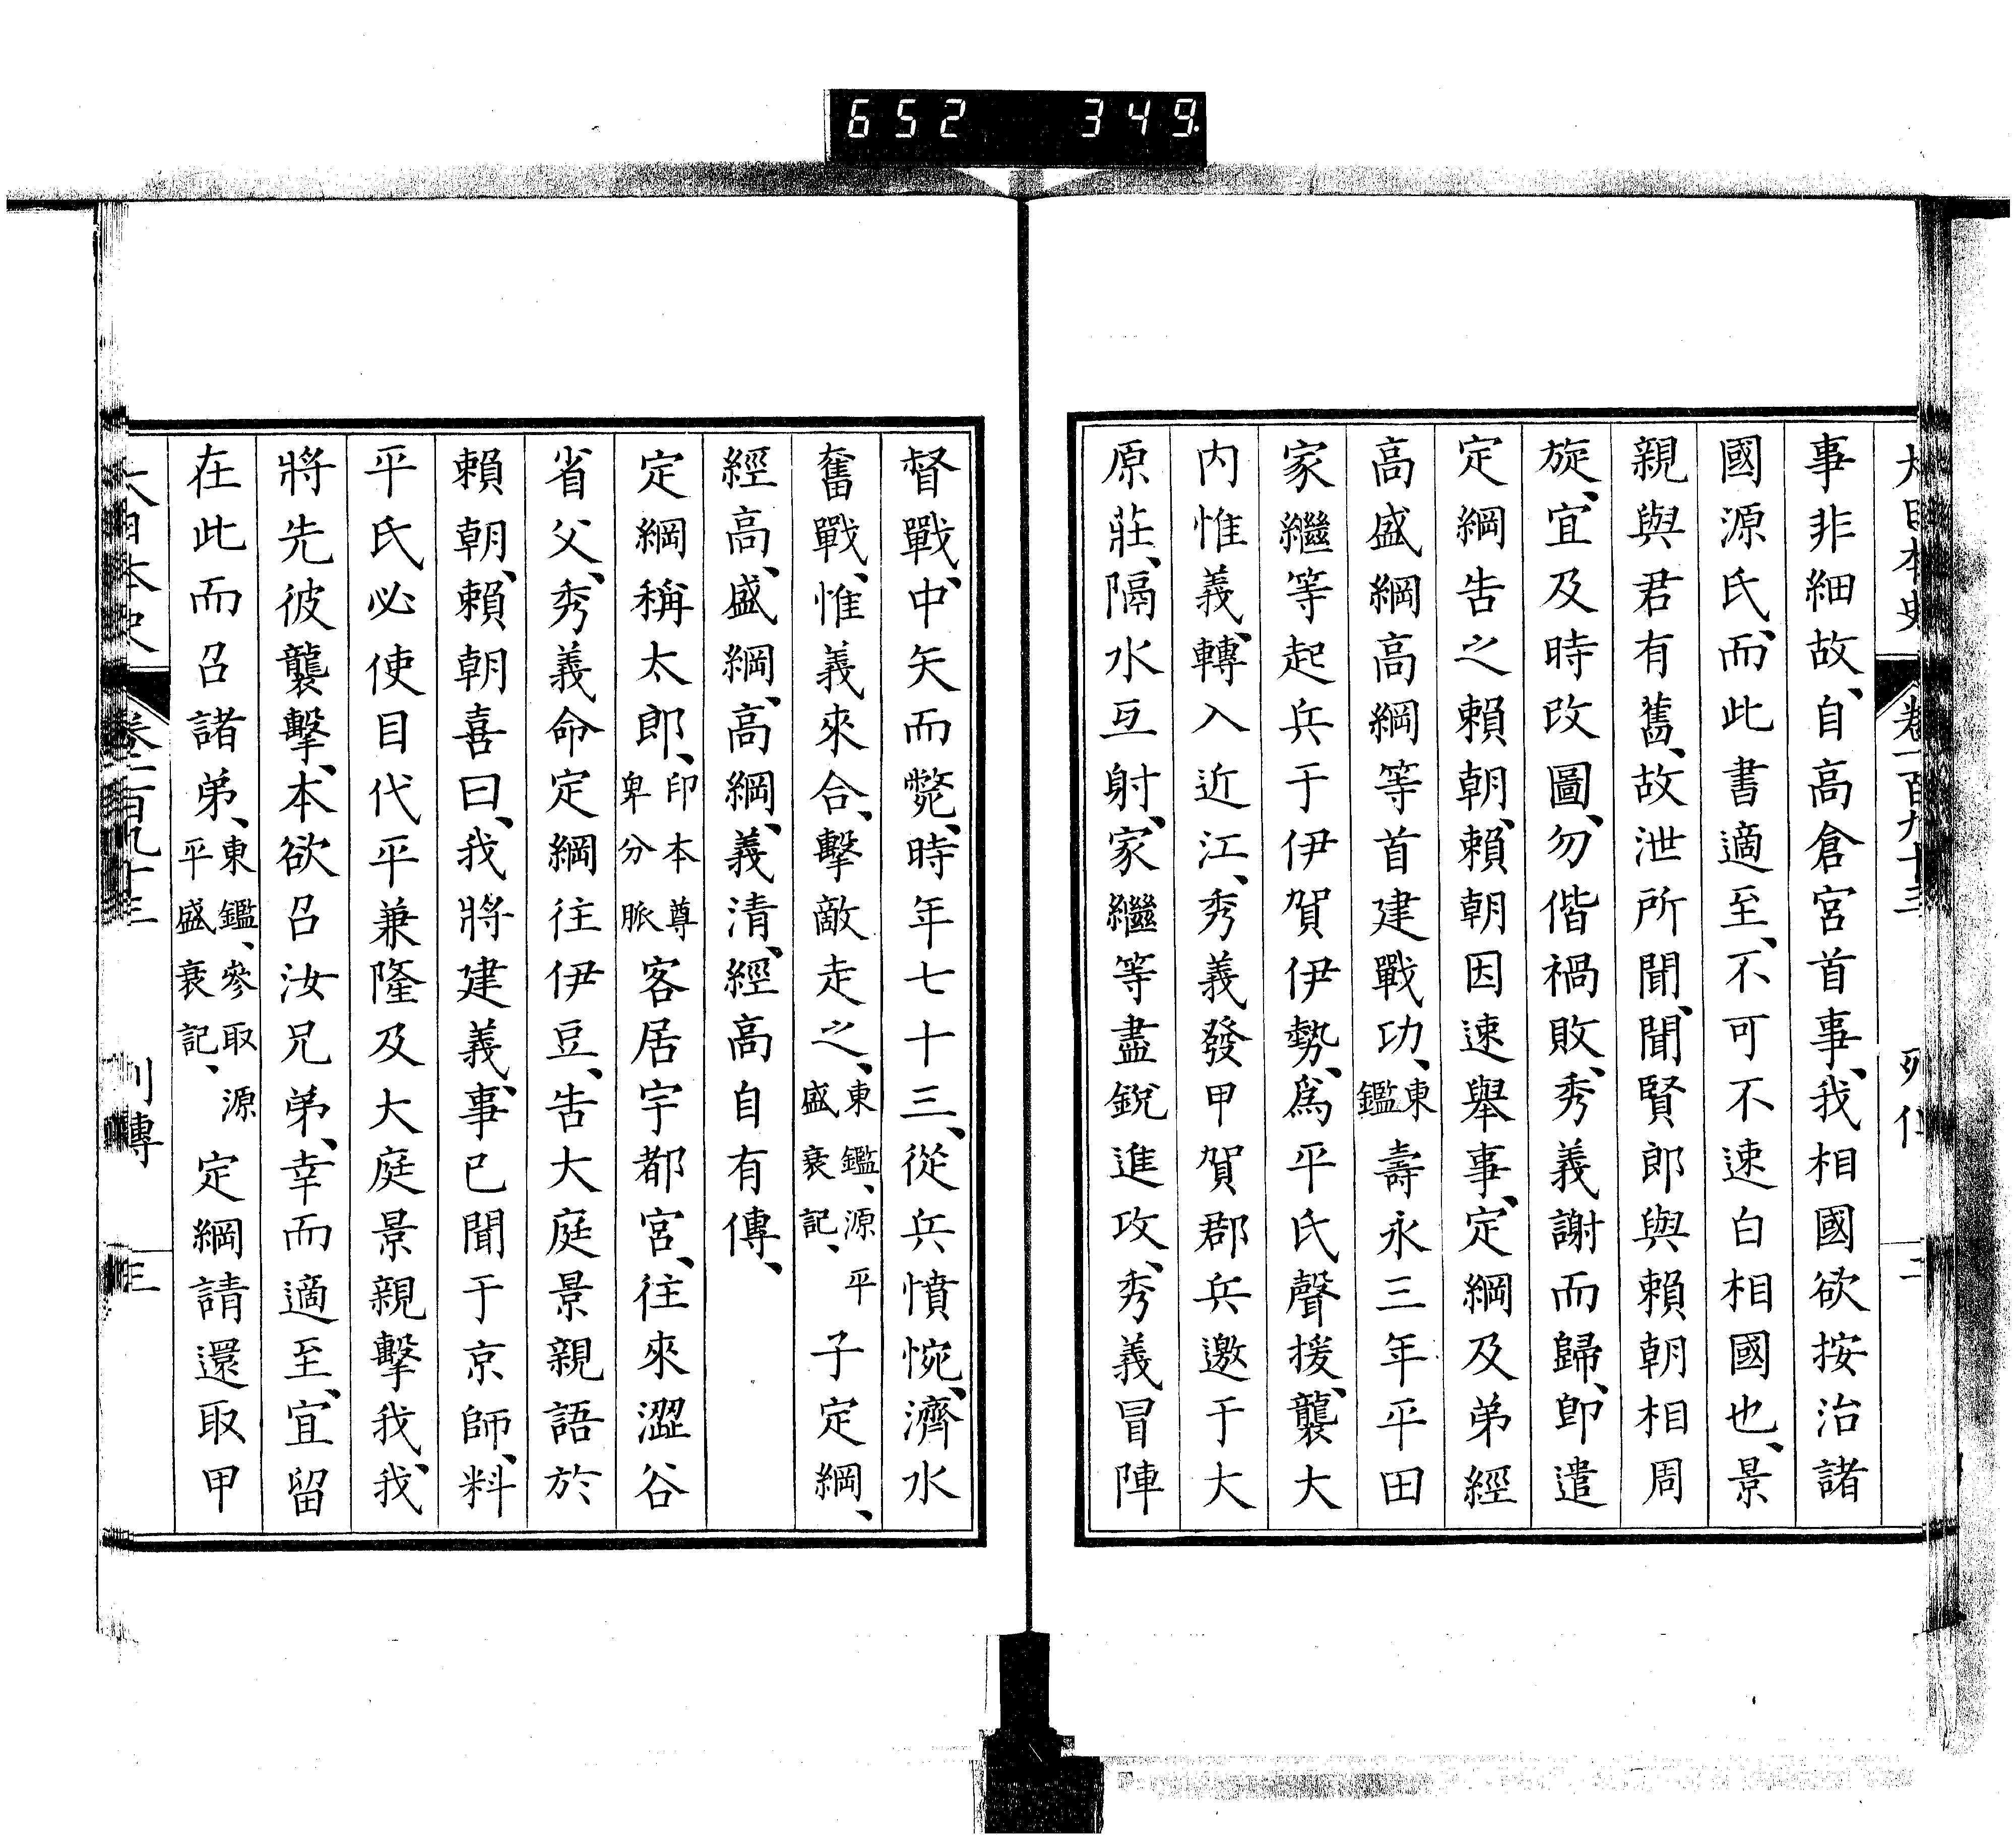 652 349
大日本史 卷一百九十三 列傳 二
事非細故、自高倉宮首事、我相國欲按治諸
國源氏、而此書適至、不可不速白相國也、景
親與君有舊、故泄所聞、聞賢郎與賴朝相周
旋、宜及時改圖、勿偕禍敗、秀義謝而歸、卽遣
定綱告之賴朝、賴朝因速舉事、定綱及弟經
高盛綱高綱等首建戰功、東鑑壽永三年平田
家繼等起兵于伊賀伊勢、爲平氏聲援、襲大
内惟義、轉入近江、秀義發甲賀郡兵邀于大
原莊、隔水互射、家繼等盡銳進攻、秀義冒陣
督戰、中矢而斃、時年七十三、從兵憤惋、濟水
奮戰、惟義來合、擊敵走之、東鑑、源平盛衰記、子定綱、
經高、盛綱、高綱、義清、經高自有傳、
定綱稱太郎、印本尊卑分脈客居宇都宮、往來澀谷
省父、秀義命定綱往伊豆、告大庭景親語於
賴朝、賴朝喜曰、我將建義、事已聞于京師、料
平氏必使目代平兼隆及大庭景親擊我、我
將先彼襲擊、本欲召汝兄弟、幸而適至、宜留
在此而召諸弟、東鑑、參取源平盛衰記、定綱請還取甲
大日本史 卷一百九十三 列傳 三